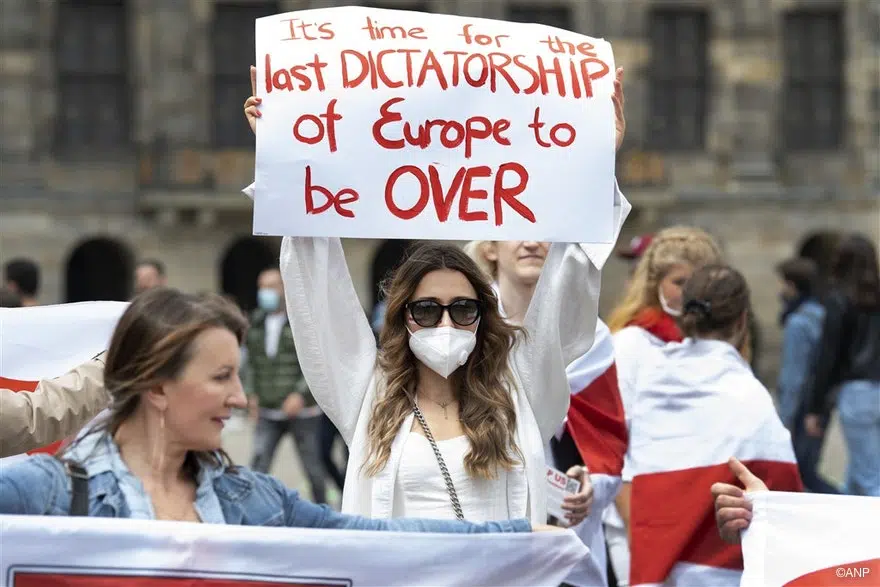 It's time for the
last DICTATORSHIP
of Europe to
be OVER
P US
©ANP